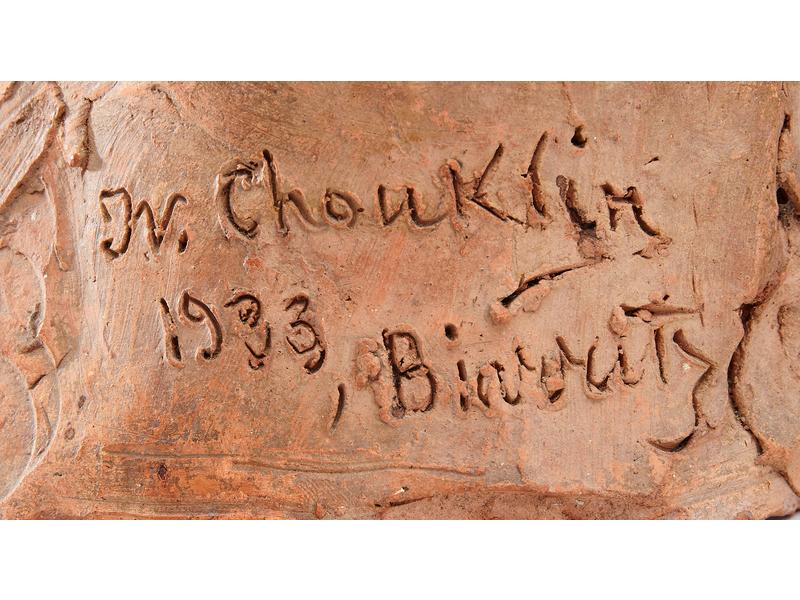 Iv. Chouklin
1933, Biarritz